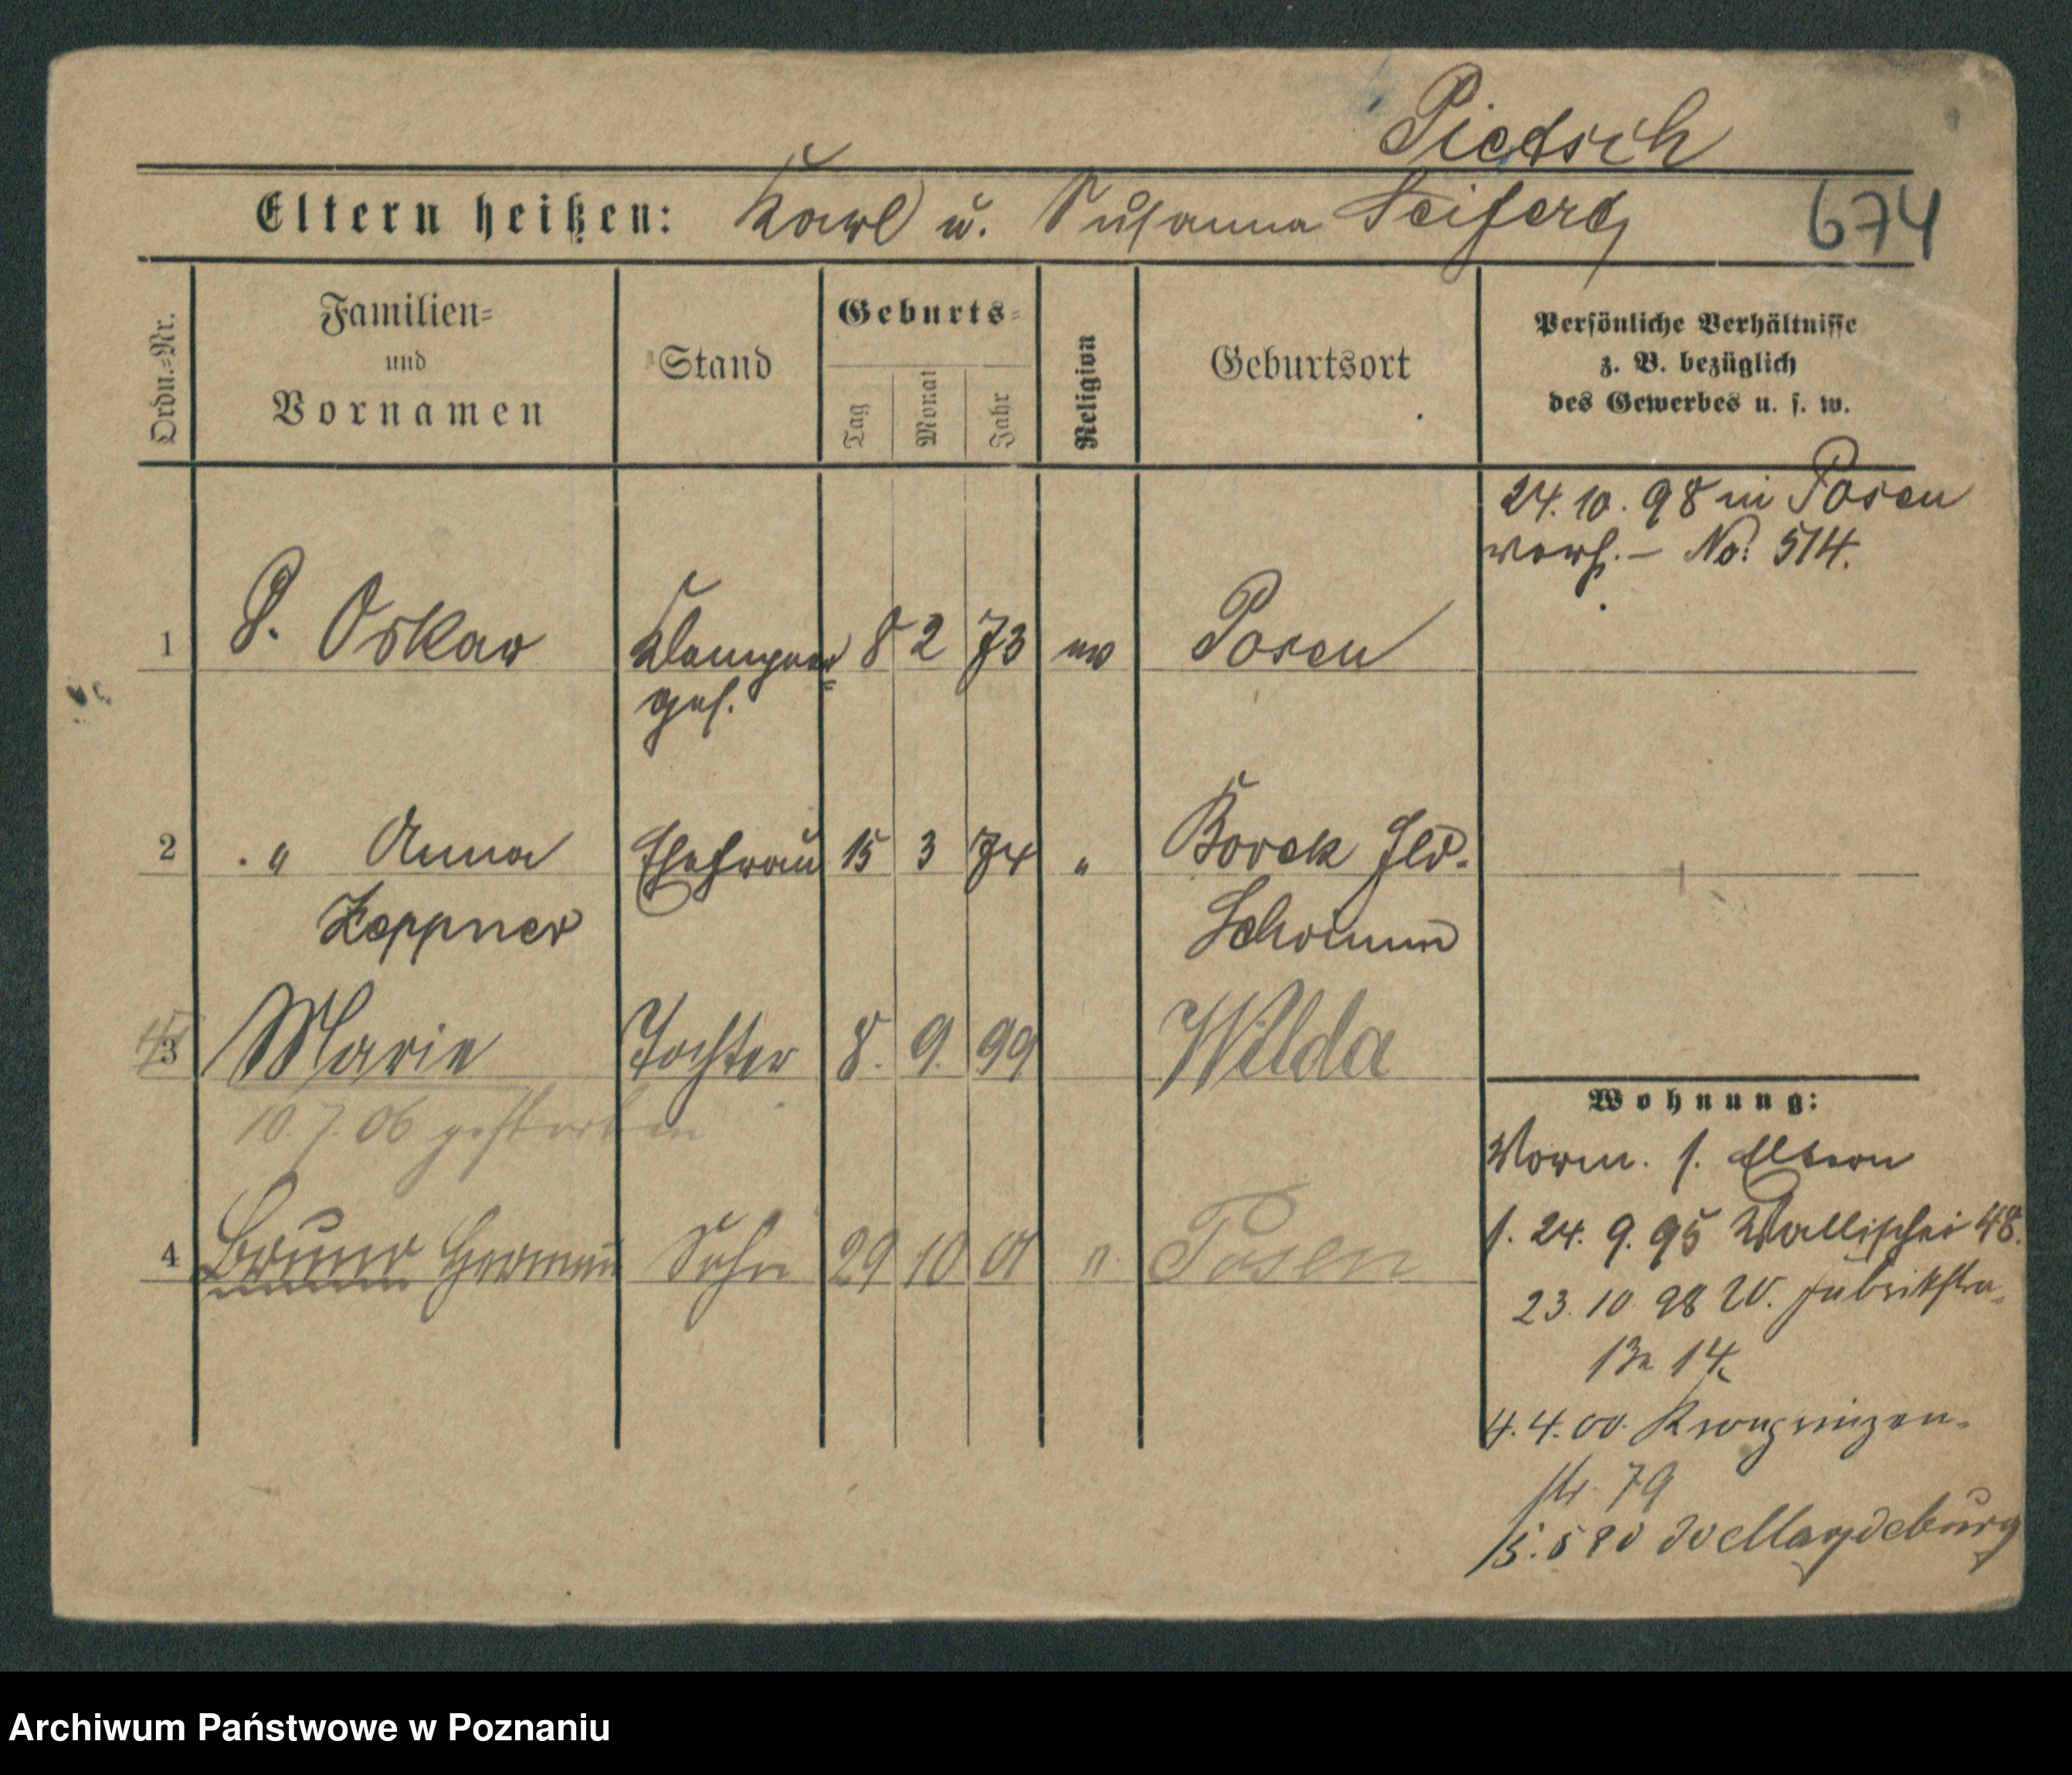 Pietsch
Eltern heißen: Karl u. Susanna Seifert
674
Ordn.-Nr.
Familien-
und
Vornamen
Stand
Geburts-
Tag
Monat
Jahr
Religion
Geburtsort
Persönliche Verhältnisse
z. B. bezüglich
des Gewerbes u. s. w.
24. 10. 98 in Posen
verh. – No. 514.
1 P. Oskar Klempner 8 2 73 ev Posen
ges.
2 " Anna Ehefrau 15 3 74 " Borek
Zeppner Schrimm
3 Marie Tochter 8. 9. 99 Wilda
10. 7. 06 gestorben
4 Bruno Herman Sohn 29 10 01 " Posen
Wohnung:
Vorm. s. Eltern
s. 24. 9. 95 Wallischei 48.
23. 10 98 W. Fabrikstr.
14
4. 4. 00. Kronprinzen-
str. 79
Magdeburg
Archiwum Państwowe w Poznaniu